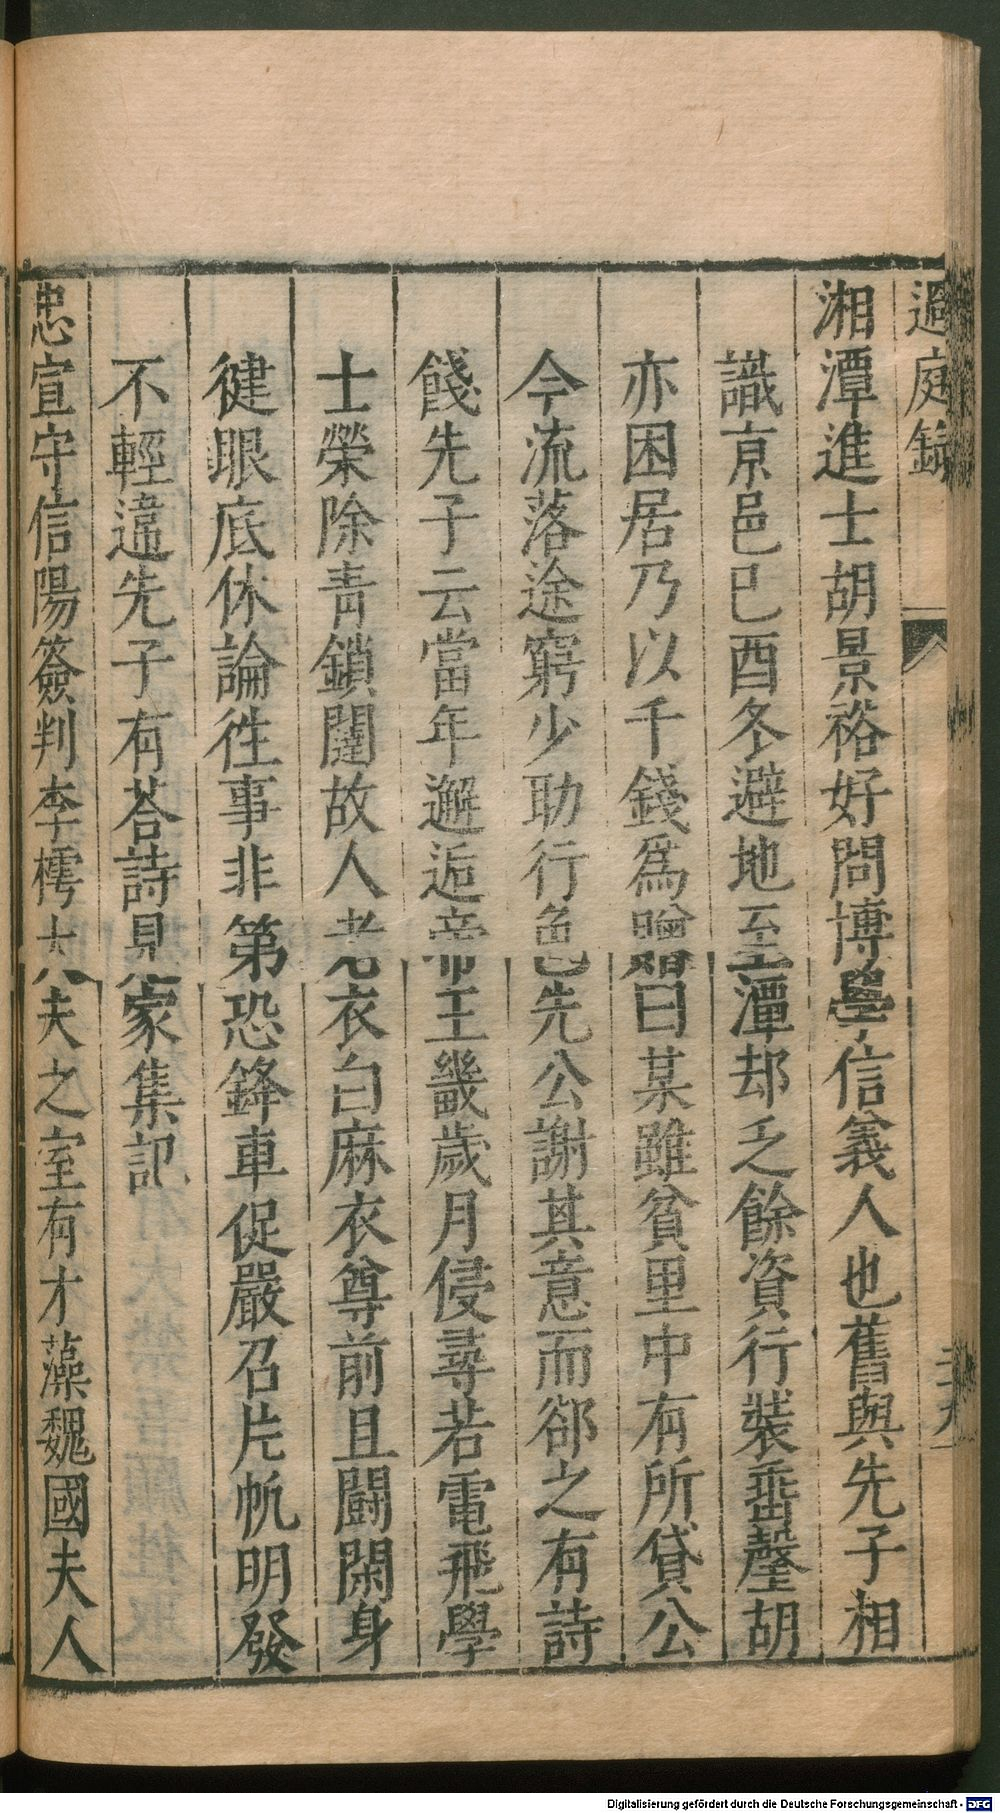 過庭錄
湘潭進士胡景裕好問博學信義人也舊與先子相
識京邑已酉冬避地至潭却乏餘資行裝垂罄胡
亦困居乃以千錢爲贈曰某雖貧里中有所貸公
今流落途窮少助行色先公謝其意而郤之有詩
餞先子云當年邂逅帝王畿歲月侵尋若電飛學
士榮除青鎖闥故人老衣白麻衣尊前且鬪閑身
健眼底休論徃事非第恐鋒車促嚴召片帆明發
不輕違先子有荅詩見家集記
忠宣守信陽簽判李樗大夫之室有才藻魏國夫人
Digitalisierung gefördert durch die Deutsche Forschungsgemeinschaft - DFG